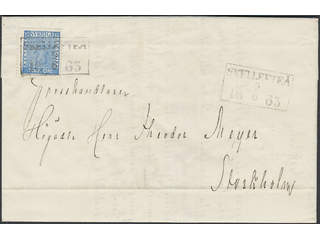 SVERIGE
SKELLEFTEÅ
65
SKELLEFTEÅ
16 6 65
Grosshandlaren
Herr Theodor Meyer
Stockholm